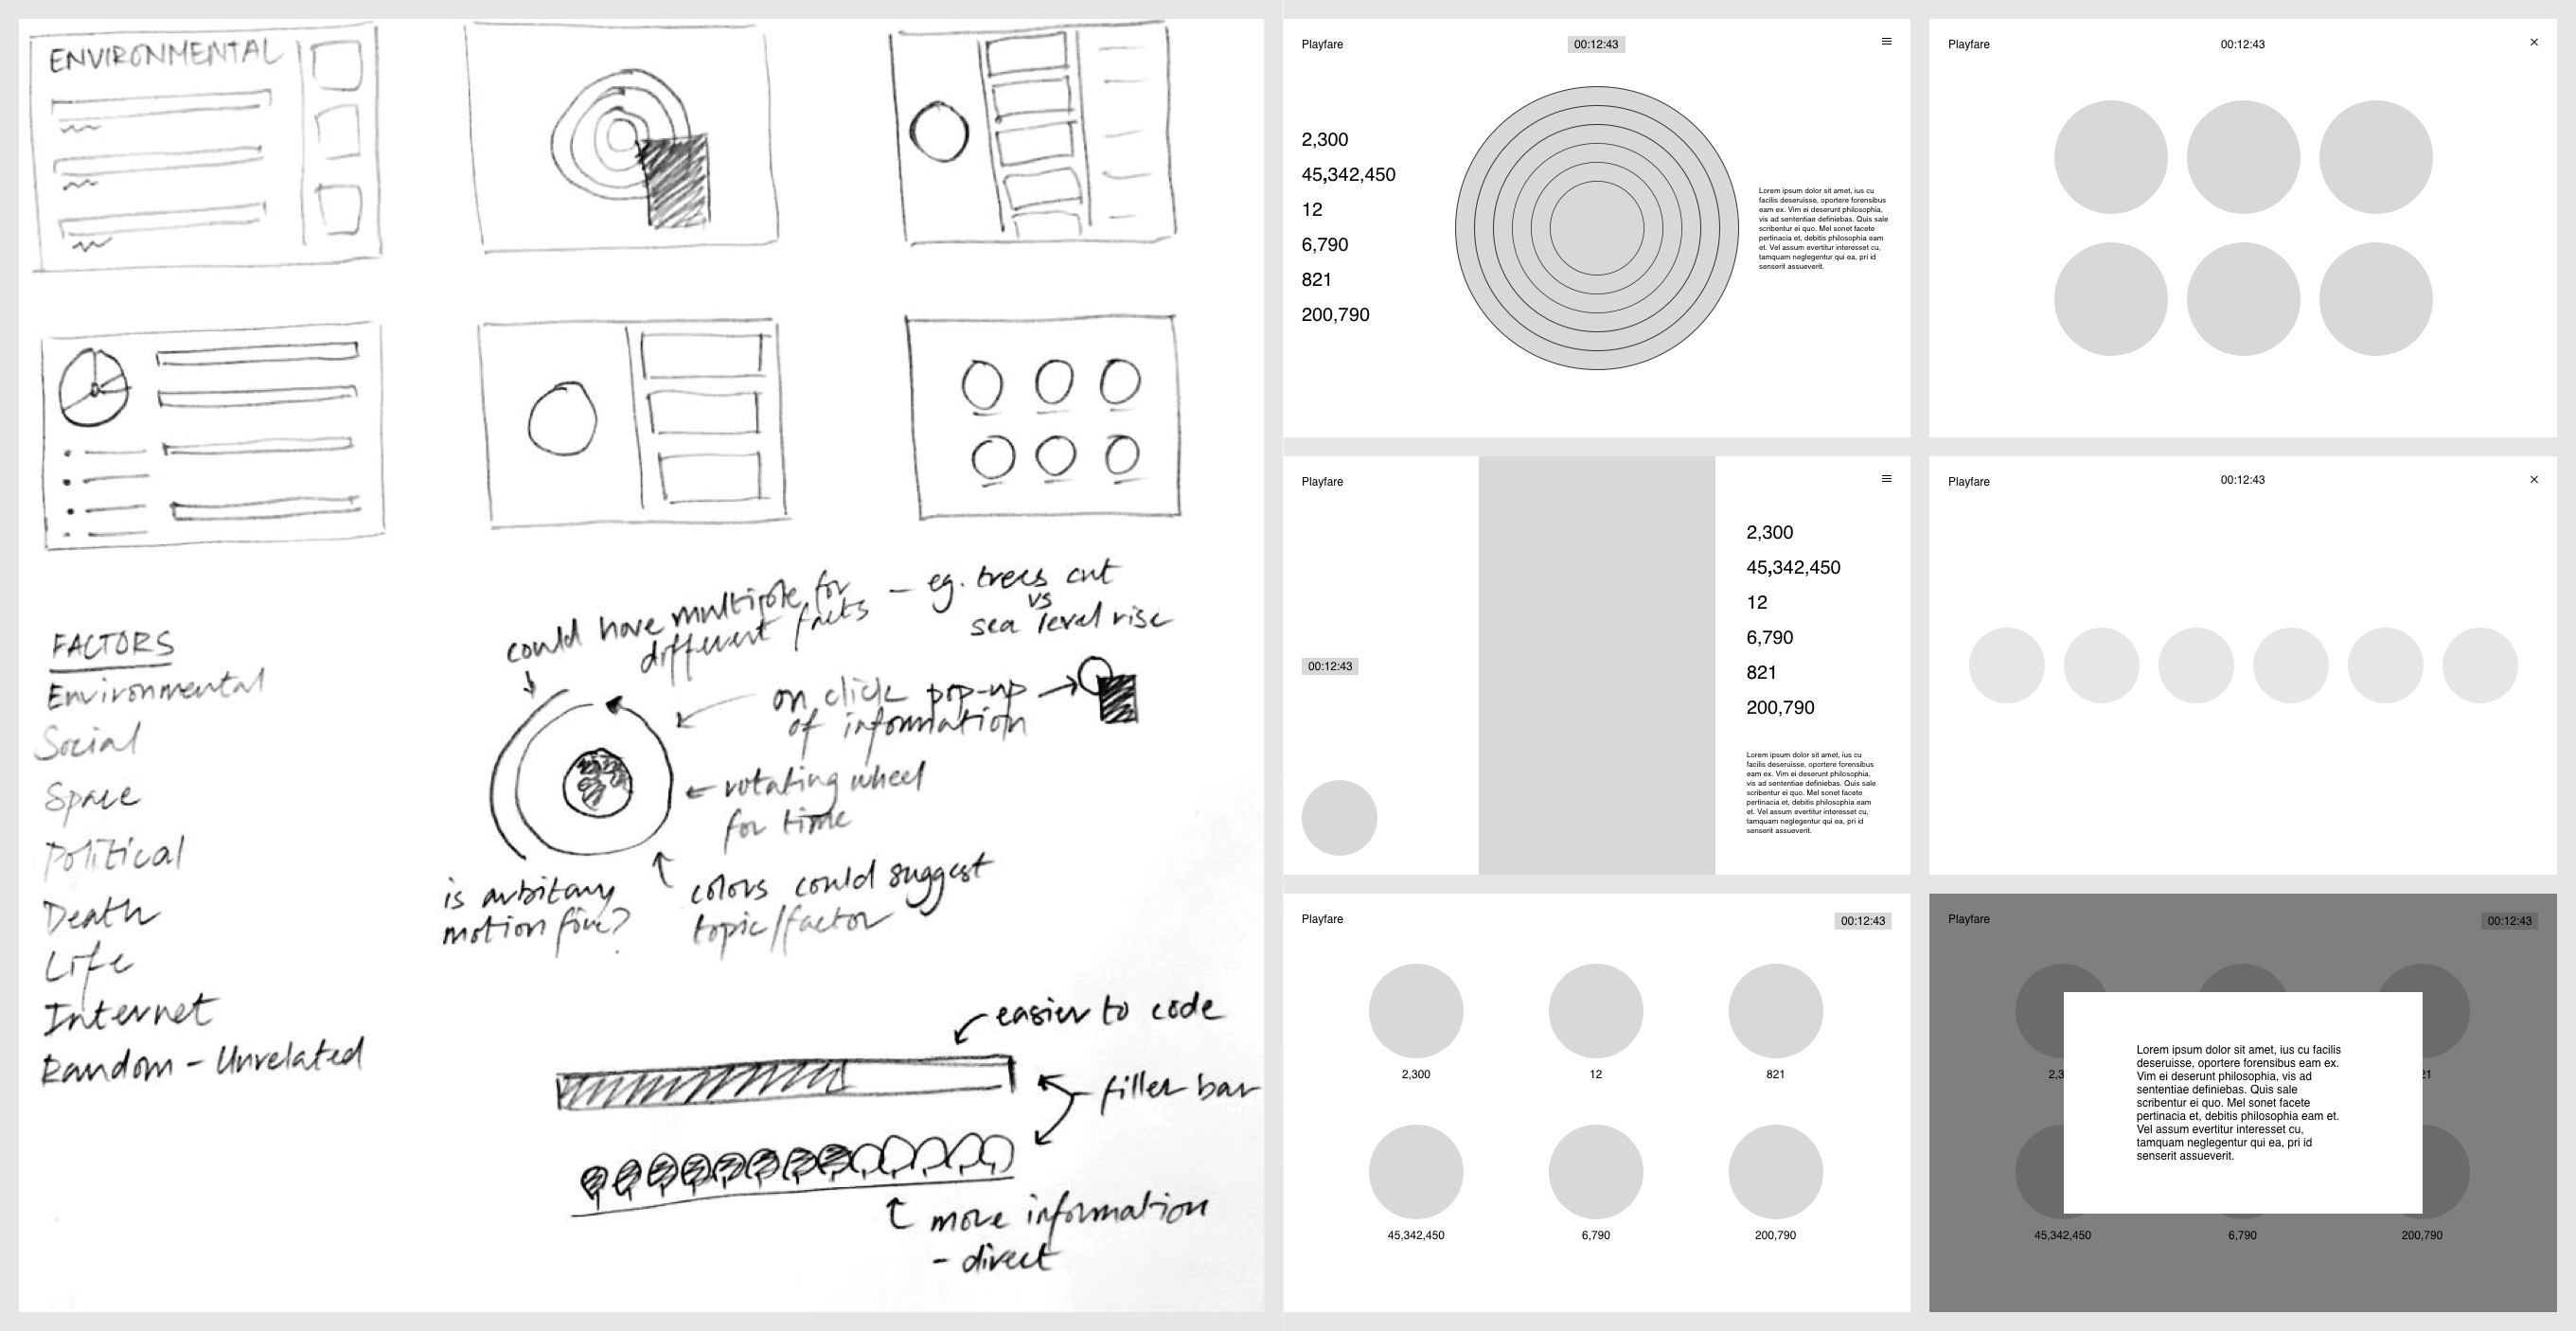 ENVIRONMENTAL
FACTORS
Environmental
Social
Space
Political
Death
Life
Internet
Random - Unrelated
could have multiple for
different facts
- eg. trees cut
vs
sea level rise
on click pop-up
of information
rotating wheel
for time
is arbitary
motion fine?
colors could suggest
topic/factor
easier to code
filler bar
more information
- direct
Playfare
00:12:43
2,300
45,342,450
12
6,790
821
200,790
Lorem ipsum dolor sit amet, ius cu
facilis deseruisse, oportere forensibus
eam ex. Vim ei deserunt philosophia,
vis ad sententiae definiebas. Quis sale
scribentur ei quo. Mel sonet facete
pertinacia et, debitis philosophia eam
et. Vel assum evertitur interesset cu,
tamquam neglegentur qui ea, pri id
senserit assueverit.
Playfare
00:12:43
Playfare
00:12:43
2,300
45,342,450
12
6,790
821
200,790
Lorem ipsum dolor sit amet, ius cu
facilis deseruisse, oportere forensibus
eam ex. Vim ei deserunt philosophia,
vis ad sententiae definiebas. Quis sale
scribentur ei quo. Mel sonet facete
pertinacia et, debitis philosophia eam
et. Vel assum evertitur interesset cu,
tamquam neglegentur qui ea, pri id
senserit assueverit.
Playfare
00:12:43
Playfare
00:12:43
2,300
12
821
45,342,450
6,790
200,790
Playfare
00:12:43
2,3
21
Lorem ipsum dolor sit amet, ius cu facilis
deseruisse, oportere forensibus eam ex.
Vim ei deserunt philosophia, vis ad
sententiae definiebas. Quis sale
scribentur ei quo. Mel sonet facete
pertinacia et, debitis philosophia eam et.
Vel assum evertitur interesset cu,
tamquam neglegentur qui ea, pri id
senserit assueverit.
45,342,450
6,790
200,790